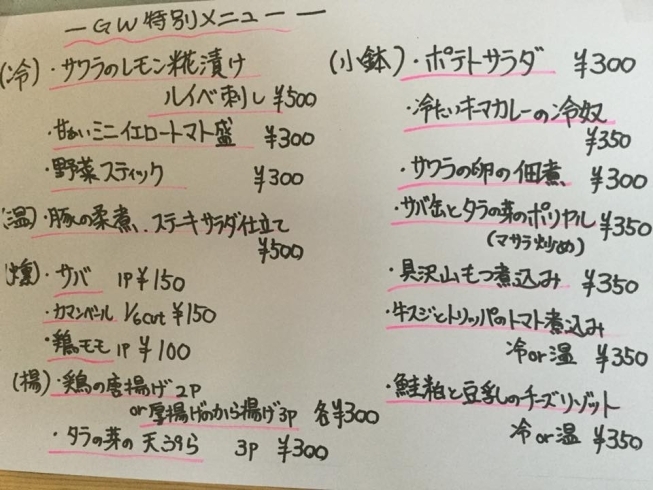 ーGW特別メニューー
(冷)・サワラのレモン糀漬け
ルイベ刺し ¥500
・甘あいミニイエロートマト盛 ¥300
・野菜スティック ¥300
(温)・豚の柔煮、ステーキサラダ仕立て
¥500
(燻)・サバ 1P ¥150
・カマンベール 1/6cut ¥150
・鶏モモ 1P ¥100
(揚)・鶏の唐揚げ 2P
or 厚揚げのから揚げ 3P 各¥300
・タラの芽の天ぷら 3P ¥300
(小鉢)・ポテトサラダ ¥300
・冷たいキマカレーの冷奴
¥350
・サワラの卵の佃煮 ¥300
・サバ缶とタラの芽のポリヤル ¥350
(マサラ炒め)
・具沢山もつ煮込み ¥350
・牛スジとトリッパのトマト煮込み
冷or温 ¥350
・鮭粕と豆乳のチーズリゾット
冷or温 ¥350